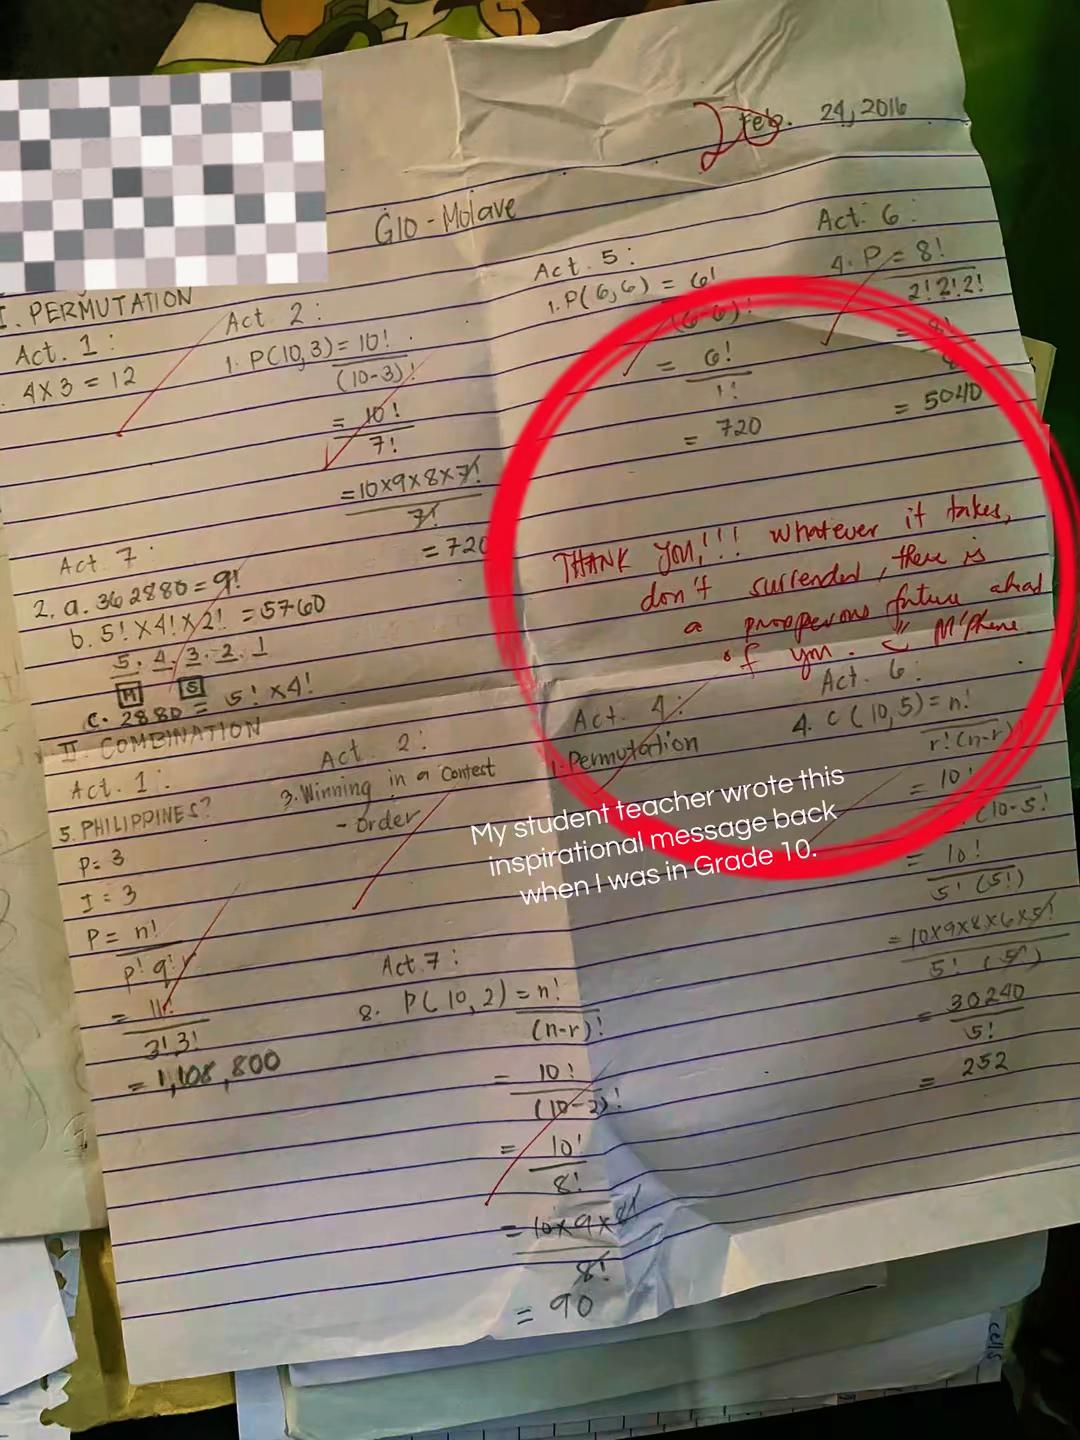 Feb. 24, 2016
G10 - Molave
I. PERMUTATION
Act. 1 :
4 x 3 = 12
Act. 2 :
1. P(10,3) = 10!
(10-3)!
= 10!
7!
= 10x9x8x7!
7!
= 720
Act. 5 :
1. P(6,6) = 6!
(6-6)!
= 6!
1!
= 720
Act. 6 :
4. P = 8!
2! 2! 2!
= 8!
= 5040
Act 7
2. a. 362880 = 9!
b. 5! x 4! x 2! = 5760
5. 4. 3. 2. 1
M S
c. 2880 = 5! x 4!
THANK YOU,!!! Whatever it takes,
don't surrender, there is
a prosperous future ahead
of you.
II. COMBINATION
Act. 1 :
5. PHILIPPINES?
P = 3
I = 3
P = n!
p! q!
= 11!
3! 3!
= 1,108,800
Act 2 :
3. Winning in a Contest
- Order
Act. 7 :
8. P(10, 2) = n!
(n-r)!
= 10!
(10-2)!
= 10!
8!
= 10x9x8!
8!
= 90
Act. 4 :
1. Permutation
Act. 6 :
4. C (10,5) = n!
r! (n-r)
= 10!
(10-5!
= 10!
5! (5!)
= 10x9x8x6x5!
5! (5!
= 30240
5!
= 252
My student teacher wrote this
inspirational message back
when I was in Grade 10.
cells